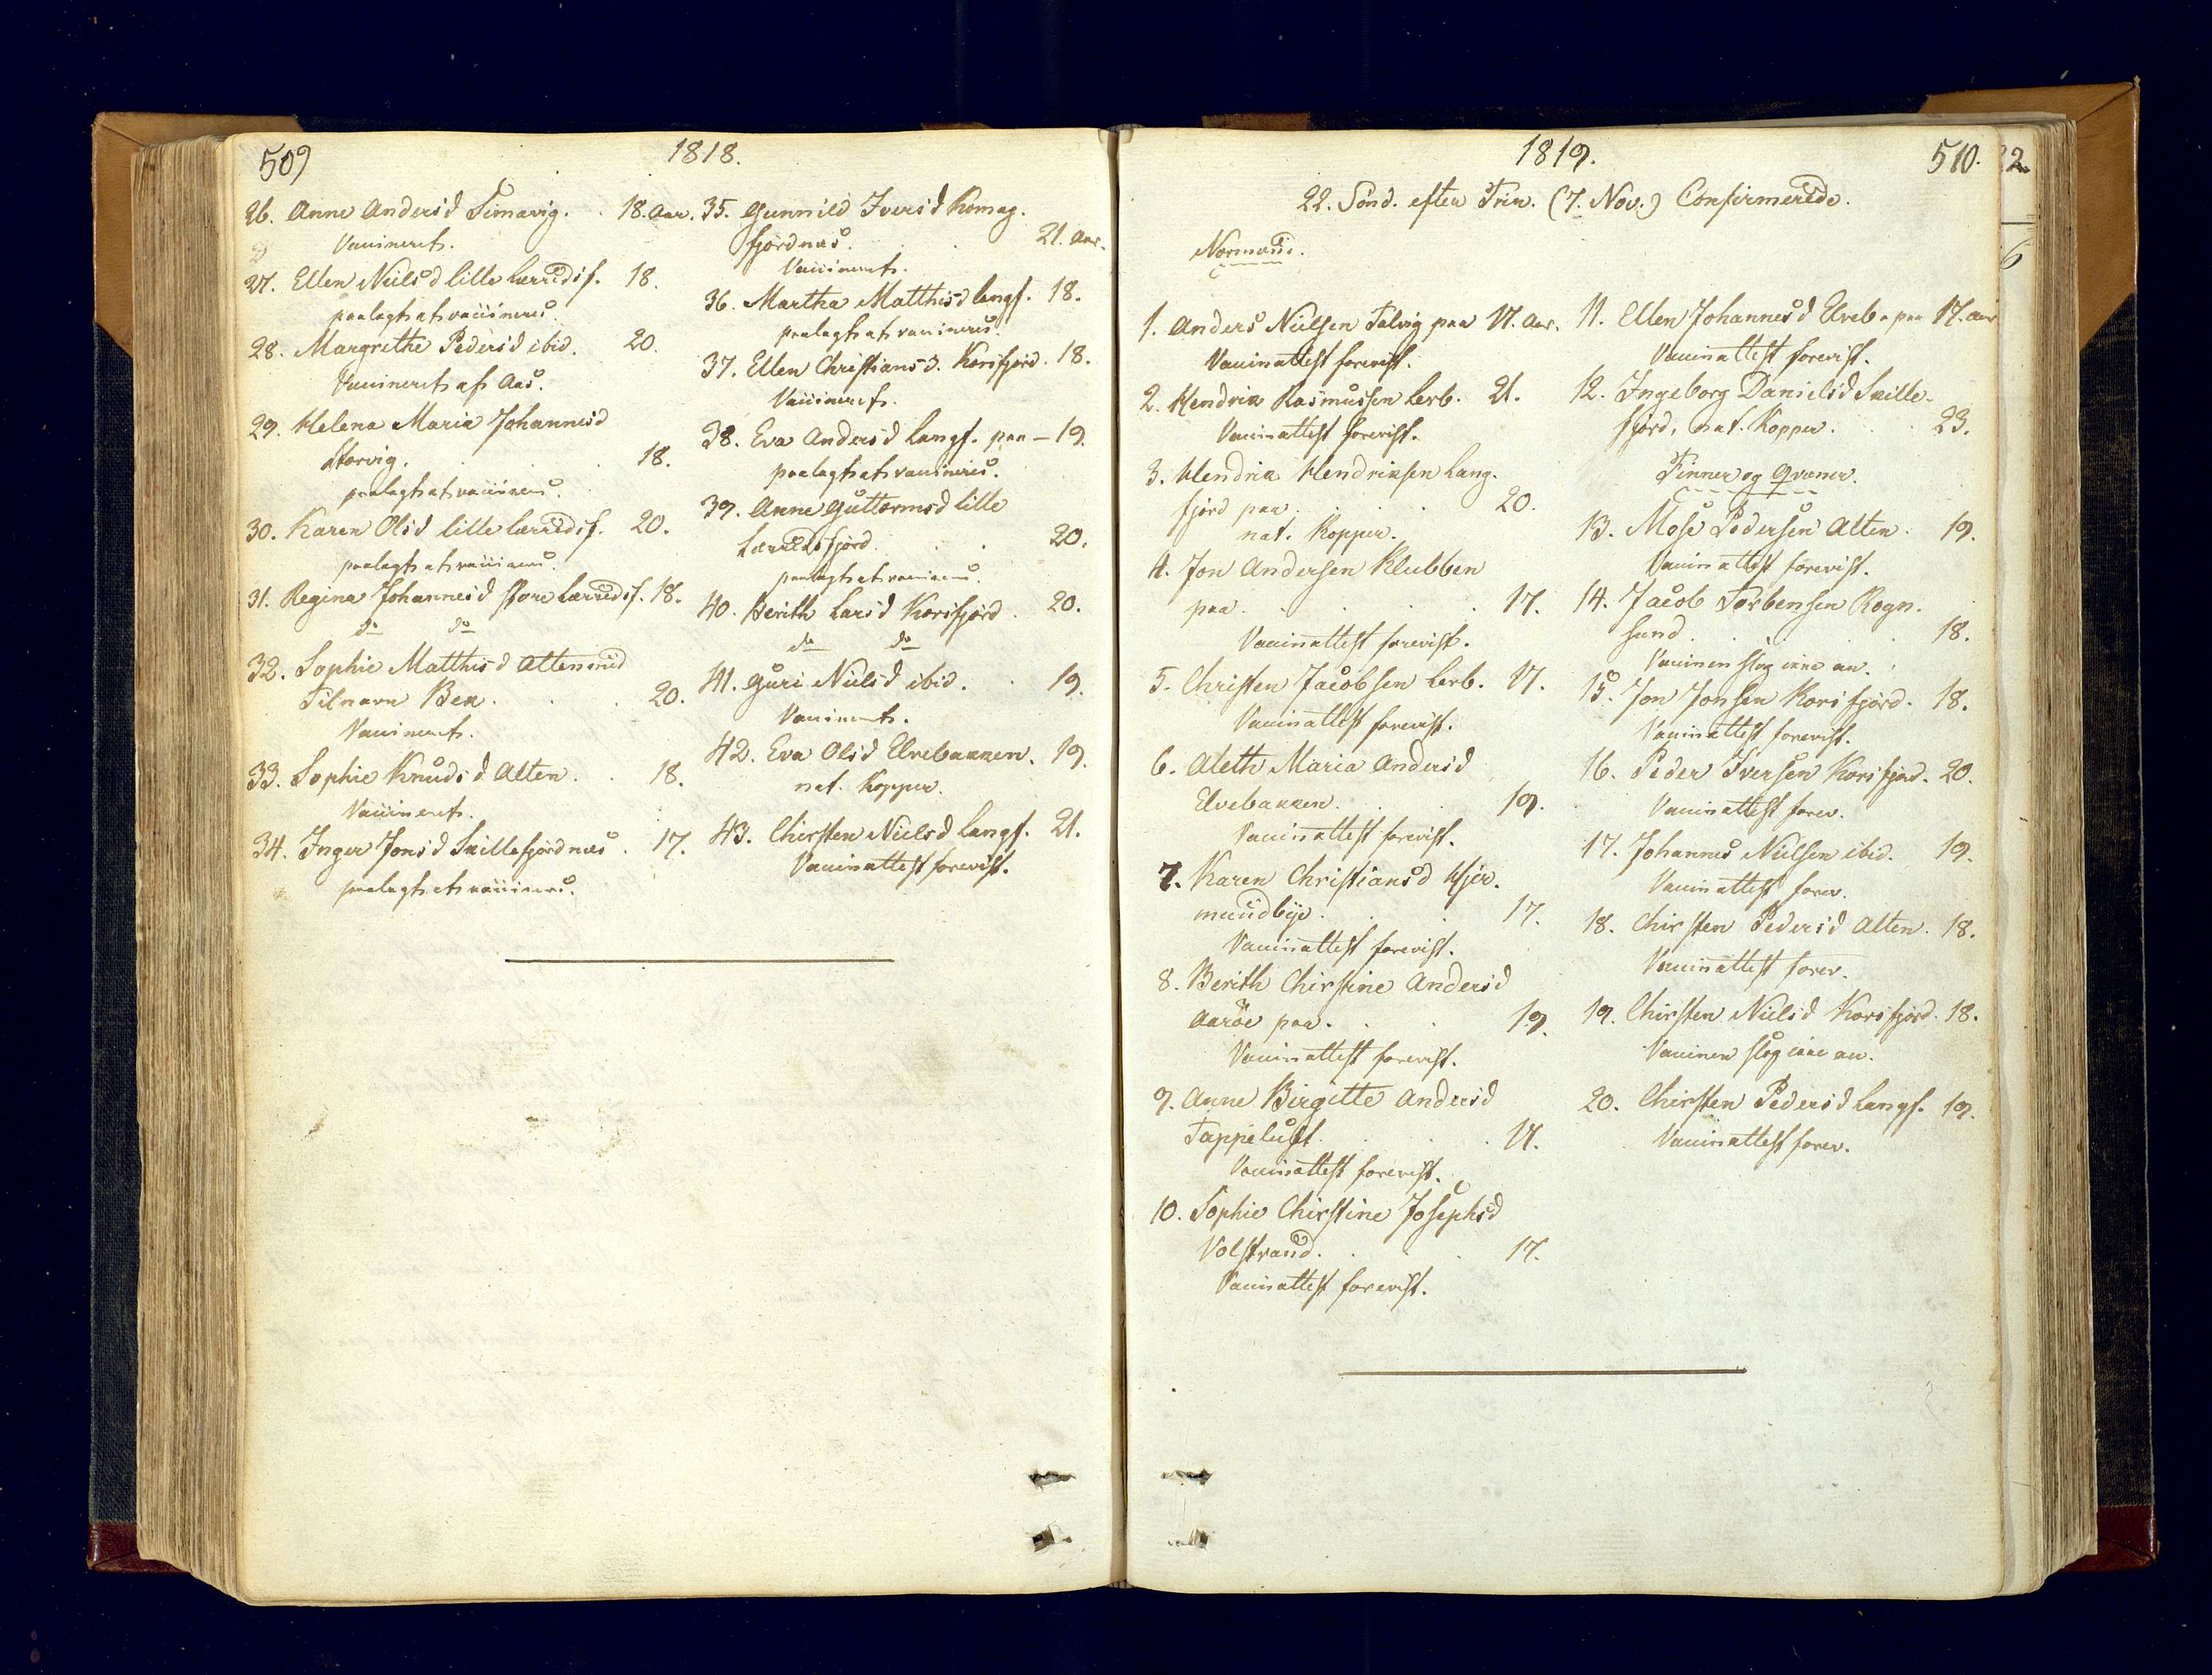 509
1818.
26. Anne Andersd Simavig. . 18. Aar.
Vaccineret.
27. Ellen Neilsd lille Lerredsf. 18.
paalagt at vaccineres.
28. Margrethe Pedersd ibid. 20.
Vaccineret af Aas.
29. Helena Maria Johannesd
Storvig. . . 18.
paalagt at vaccineres.
30. Karen Olsd lille Lerredsf. 20.
paalagt at vaccineres.
31. Regina Johannesd store Lerredsf. 18.
do do
32. Sophie Matthisd Alten med
Tilnavn Bek. . . 20.
Vaccineret.
33. Sophie Knudsd Alten. . 18.
Vaccineret.
34. Inger Jonsd Skillefjordnæs . 17.
paalagt at vaccineres.
35. Gunnild Iversd Komag.
fjordnæs. . . 21. Aar.
Vaccineret.
36. Martha Matthisd Langf. 18.
paalagt at vaccineres.
37. Ellen Christiansd. Korsfjord. 18.
Vaccineret.
38. Eva Andersd Langf. paa – 19.
paalagt at vaccineres.
39. Anne Guttormsd lille
Lerredsfjord . . 20.
paalagt at vaccineres.
40. Berith Larsd Korsfjord . 20.
do do
41. Guri Nielsd ibid. . 19.
Vaccineret.
42. Eva Olsd Elvebakken. 19.
nat. Kopper.
43. Chirsten Nielsd Langf. 21.
Vaccinattest forevist.
1819.
510.
22. Sönd. efter Trin. (7. Nov.) Confirmerede.
Normænd.
1. Anders Nielsen Talvig paa 17. Aar.
Vaccinattest forevist.
2. Hendrik Rasmussen Lerb. 21.
Vaccinattest forevist.
3. Hendrik Hendriksen Lang.
fjord paa . . . 20.
nat. Kopper.
4. Jon Andersen Klubben
paa . . . . 17.
Vaccinattest forevist.
5. Christen Jacobsen Lerb. 17.
Vaccinattest forevist.
6. Aleth Maria Andersd
Elvebakken. . . 19.
Vaccinattest forevist.
7. Karen Christiansd Hjer.
mundbye. . . 17.
Vaccinattest forevist.
8. Berith Chirstine Andersd
Aaröe paa. . . 19.
Vaccinattest forevist.
9. Anne Birgitte Andersd
Tappeluft. . . 17.
Vaccinattest forevist.
10. Sophie Chirstine Josephsd
Volstrand. . . 17.
Vaccinattest forevist.
11. Ellen Johannesd Elveb. paa 17. Aar
Vaccinattest forevist.
12. Ingeborg Danielsd Skille-
fjord, nat. Kopper. . . 23.
Finner og Qvæner.
13. Mose Pedersen Alten . 19.
Vaccinattest forevist.
14. Jacob Torbensen Rogn.
sund . . . 18.
Vaccinen slog ikke an.
15. Jon Jonsen Korsfjord. 18.
Vaccinattest forevist.
16. Peder Iversen Korsfjord. 20.
Vaccinattest forev.
17. Johannes Nielsen ibid. 19.
Vaccinattest forev.
18. Chirsten Pedersd Alten. 18.
Vaccinattest forev.
19. Chirsten Nielsd Korsfjord. 18.
Vaccinen slog ikke an.
20. Chirsten Pedersd Langf. 19.
Vaccinattest forev.